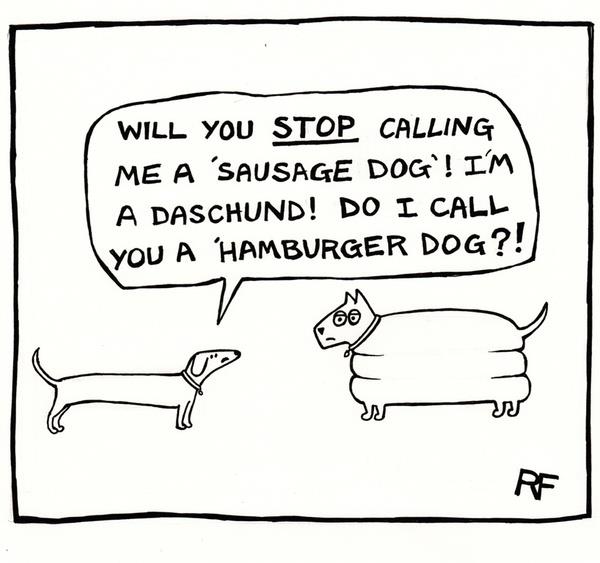 WILL YOU STOP CALLING
ME A 'SAUSAGE DOG'! I'M
A DASCHUND! DO I CALL
YOU A 'HAMBURGER DOG?!
RF